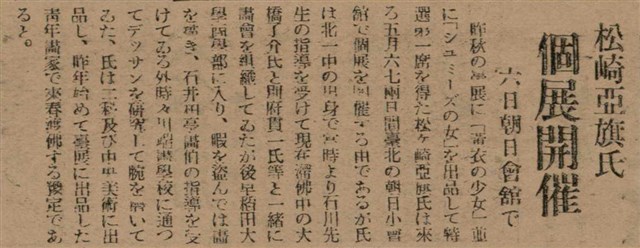 松崎亞旗氏
個展開催
六日朝日會舘で
昨秋の臺展に「靑衣の少女」並
に「シュミーズの女」を出品して特
選第一席を得た松ヶ崎亞旗氏は來
る五月六七兩日間臺北の朝日小會
館で個展を開催する由であるが氏
は北一中の出身で當時より石川先
生の指導を受けて現在滯佛中の大
橋了介氏と別府貫一氏等と一緒に
畫會を組織してゐたが後早稻田大
學 學部に入り、暇を盗んでは畫
を描き、石井 亭畫伯の指導を受
けてゐる外時々川端畫學校に通つ
てデッサンを研究して腕を磨いて
ゐた、氏は二科及び中央美術に出
品し、昨年始めて臺展に出品した
靑年畫家で來春渡佛する豫定であ
ると。